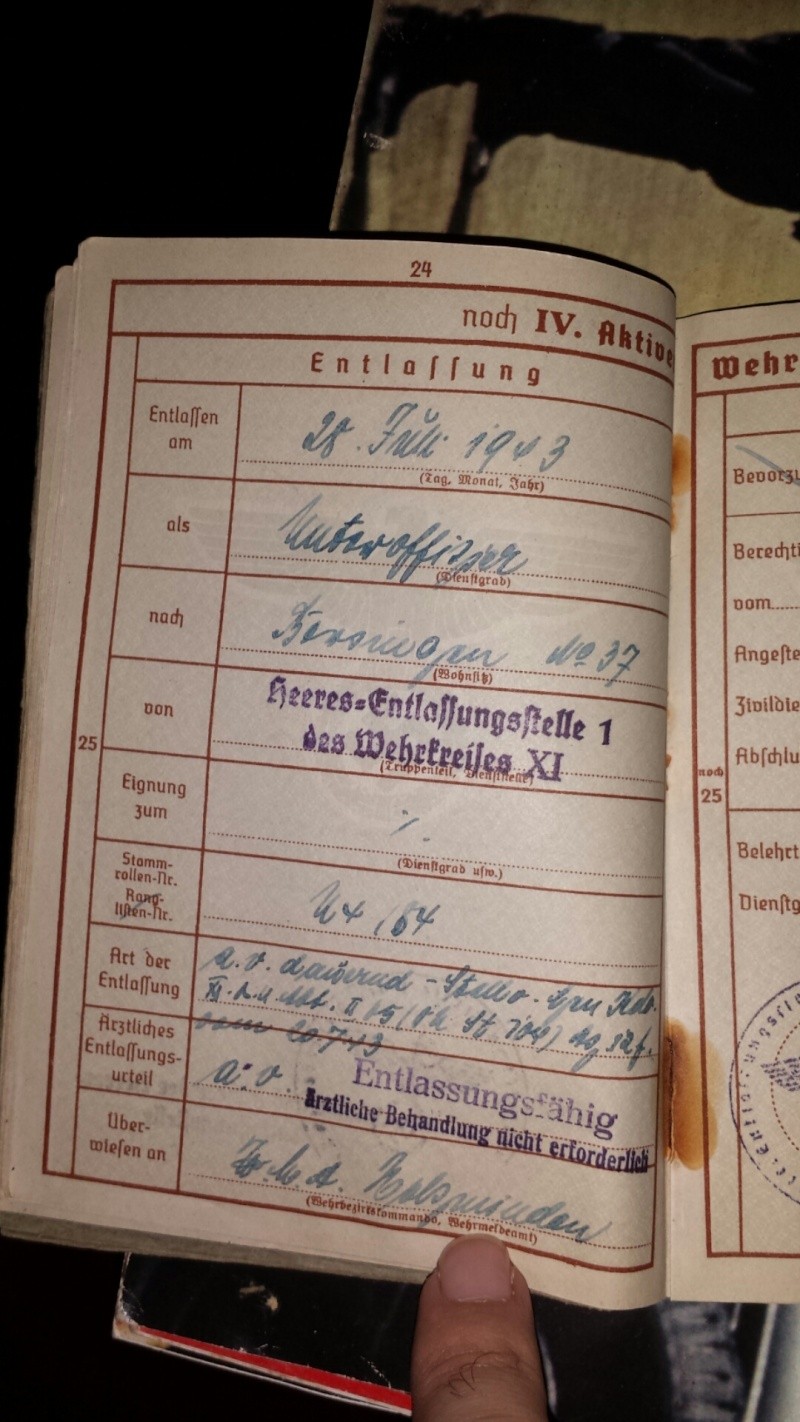 24
noch IV. Aktive
Entlassung
Entlassen am
28. Juli 1943
(Tag, Monat, Jahr)
als
Unteroffizier
(Dienstgrad)
nach
No 37
(Wohnsitz)
von
Heeres-Entlassungsstelle 1
des Wehrkreises XI
(Truppenteil, Dienststelle)
25
Eignung zum
(Dienstgrad usw.)
Stamm-
rollen-Nr.
Rang-
listen-Nr.
Art der
Entlassung
a. v. dauernd - Stellv. Gen Kdo.
vom 20 7 43
Ärztliches
Entlassungs-
urteil
a. v.
Entlassungsfähig
ärztliche Behandlung nicht erforderlich
Über-
wiesen an
W. M. A. Holzminden
(Wehrbezirkskommando, Wehrmeldeamt)
Wehr
Bevorzu
Berechti
vom
Angeste
Zivildie
Abschlu
noch
25
Belehrt
Dienstg